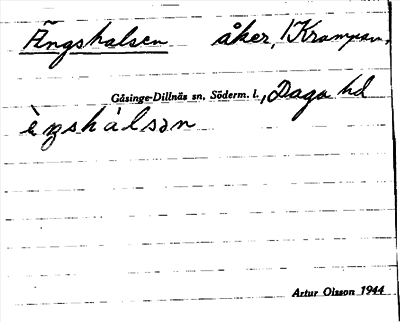 Ängshalsen åker, Krampan,
Gåsinge-Dillnäs sn, Söderm. l., Daga hd
èŋshálsən
Artur Olsson 1944